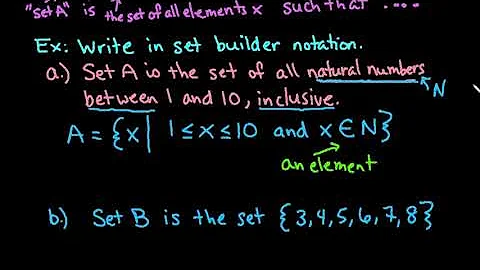 "set A" is the set of all elements x such that ....
Ex: Write in set builder notation.
a.) Set A is the set of all natural numbers
between 1 and 10, inclusive.
N
A = {x| 1≤x≤10 and x∈N}
an element
b.) Set B is the set {3,4,5,6,7,8}